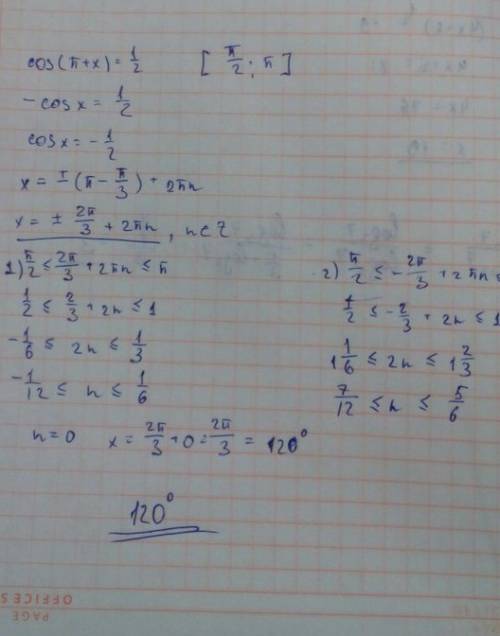 cos(π+x)=1/2 [π/2; π]
-cosx=1/2
cosx=-1/2
x=±(π-π/3)+2πn
x=±2π/3+2πn, n∈Z
1) π/2≤2π/3+2πn≤π
1/2≤2/3+2n≤1
-1/6≤2n≤1/3
-1/12≤n≤1/6
n=0 x=2π/3+0=2π/3=120°
2) π/2≤-2π/3+2πn≤
1/2≤-2/3+2n≤1
1 1/6≤2n≤1 2/3
7/12≤n≤5/6
120°
OFFICES
PAGE